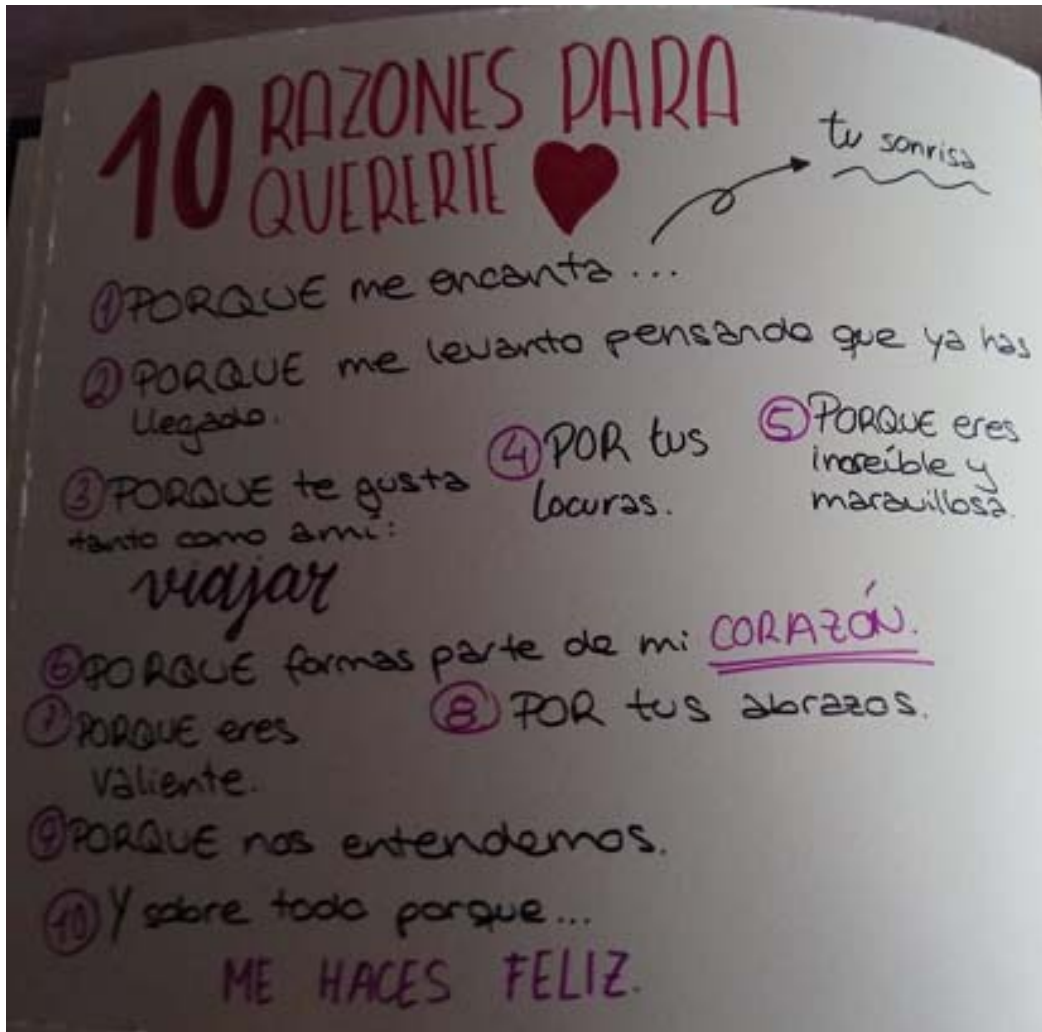 10 RAZONES PARA
QUERERTE
tu sonrisa
① PORQUE me encanta...
② PORQUE me levanto pensando que ya has
llegado.
③ PORQUE te gusta
tanto como ami:
viajar
④ POR tus
locuras.
⑤ PORQUE eres
increíble y
maravillosa.
⑥ PORQUE formas parte de mi CORAZÓN.
⑦ PORQUE eres
valiente.
⑧ POR tus abrazos.
⑨ PORQUE nos entendemos.
⑩ Y sobre todo porque...
ME HACES FELIZ.